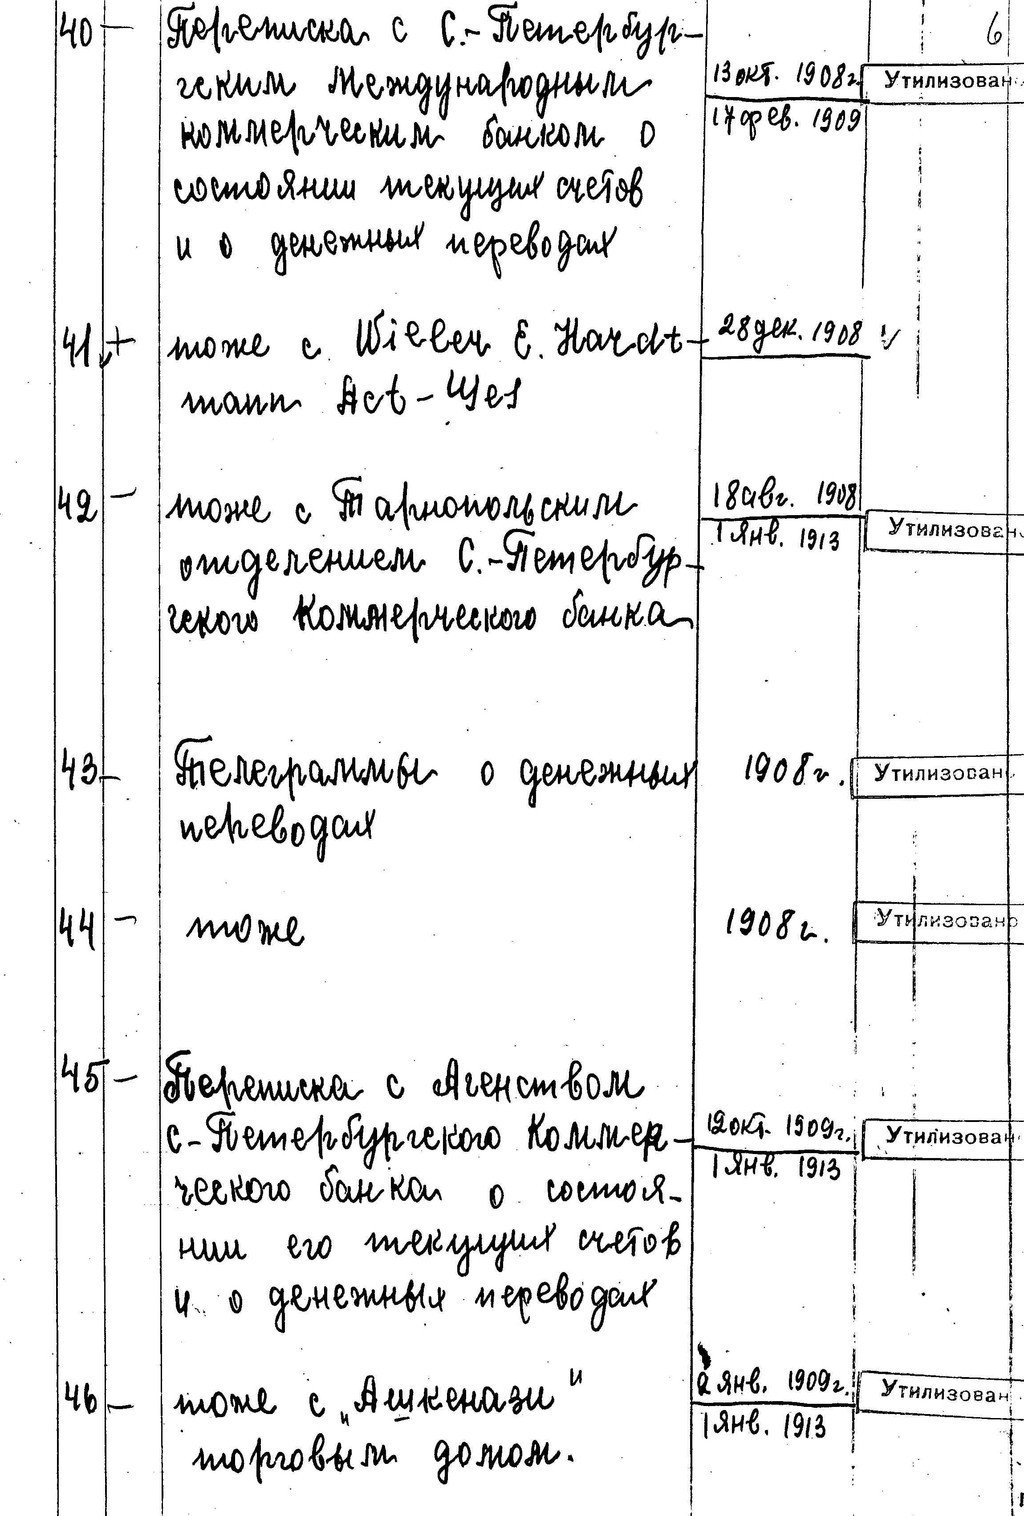 6
40 — Переписка с С.-Петербур-
гским Международным
коммерческим банком о
состоянии текущих счетов
и о денежных переводах
13 окт. 1908г.
17 фев. 1909
Утилизован
41 + тоже с Wieler E. Hardt-
mann Act-Ges
28 дек. 1908
42 — тоже с Тарнопольским
отделением С.-Петербур-
гского Коммерческого банка
18 авг. 1908
1 янв. 1913
Утилизован
43 — Телеграммы о денежных
переводах
1908г.
Утилизован
44 — тоже
1908г.
Утилизовано
45 — Переписка с Агенством
С-Петербургского Коммер-
ческого банка о состоя-
нии его текущих счетов
и о денежных переводах
12 окт. 1909г.
1 янв. 1913
Утилизован
46 — тоже с „Ашкенази"
торговым домом.
2 янв. 1909г.
1 янв. 1913
Утилизован